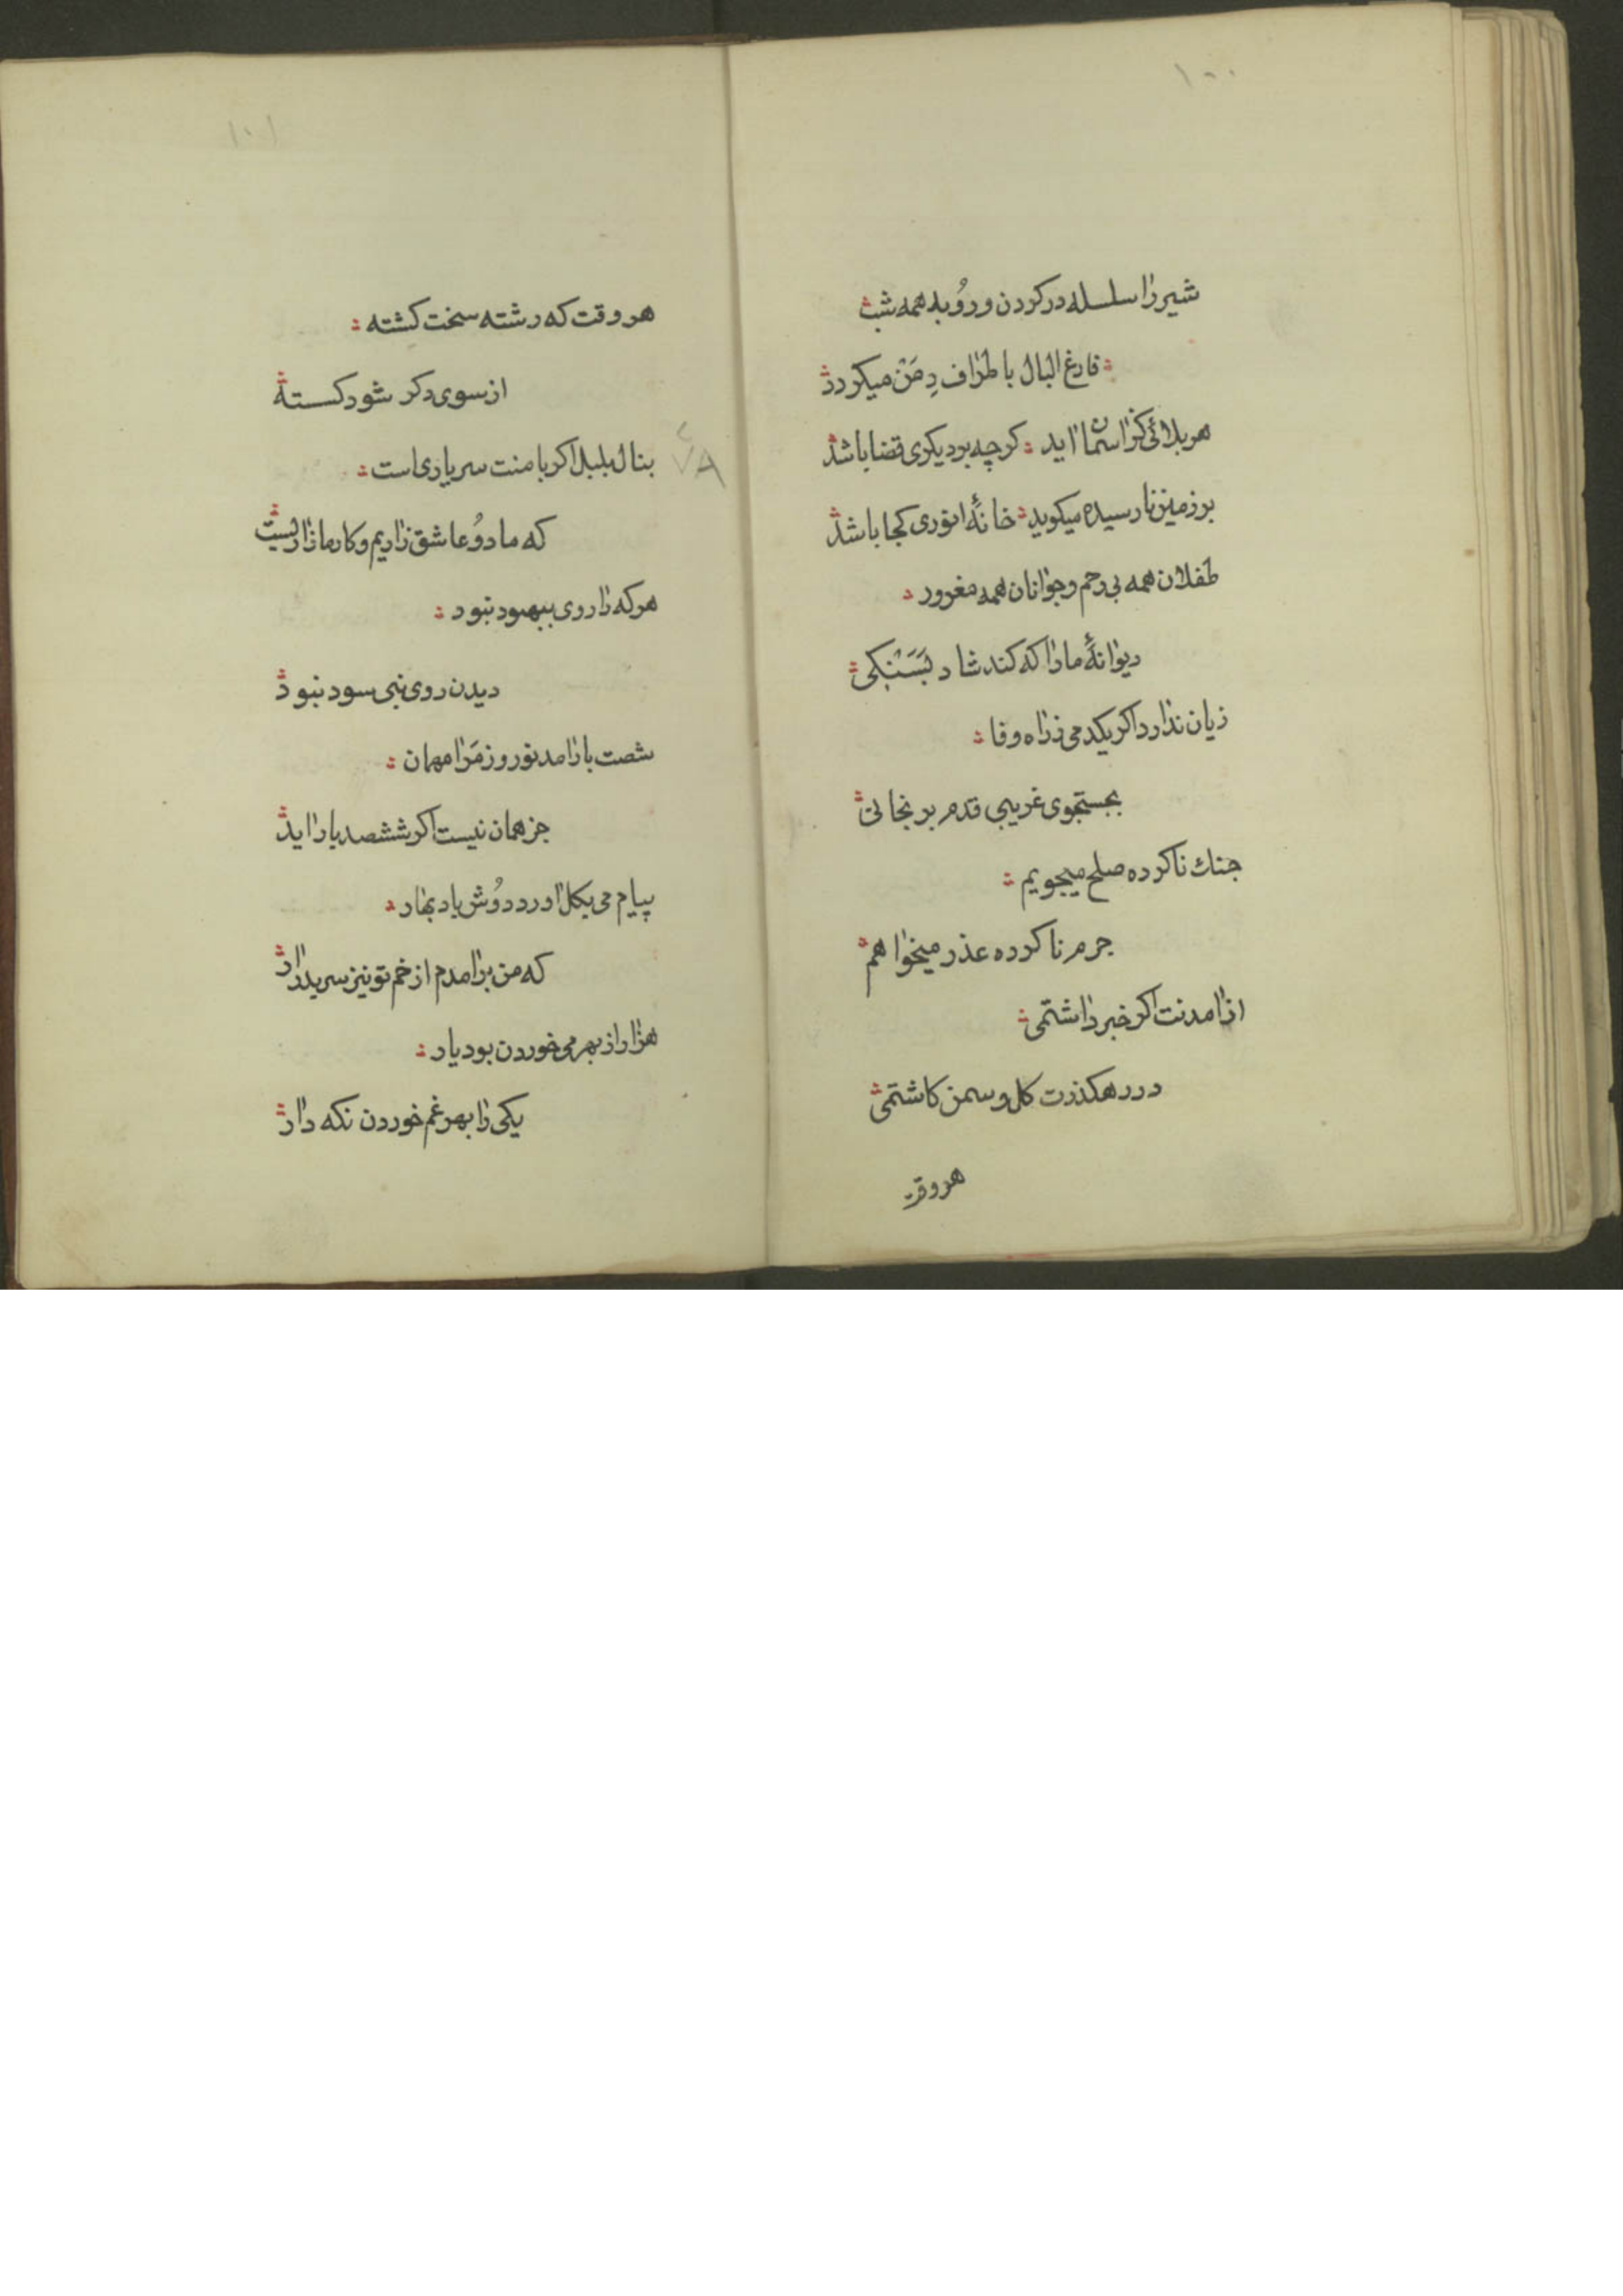 ١٠٠
شیر را سلسله در کردن و روُبه همه شب
فارغ البال باطراف دِمَنْ میکردد
هر بلائی کز اسمان اید کرچه بر دیکری قضا باشد
بر زمین نارسیده میکوید خانهٔ انوری کجا باشد
طفلان همه بی رحم و جوانان همه مغرور
دیوانهٔ ما را که کند شاد بَسَنْکی
زیان ندارد اکر یکدمی ز راه وفا
بجستجوی غریبی قدم برنجانی
جنك ناکرده صلح میجویم
جرم ناکرده عذر میخواهم
از امدنت اکر خبر داشتمی
در رهکذرت کل و سمن کاشتمی
هر وقت
١٠١
هر وقت که رشته سخت کشته
از سوی دکر شود کسسته
بنال بلبل اکر با منت سر یاری است
که ما دوُ عاشق زاریم و کار ما زاریست
هر که را روی ببهبود نبود
دیدن روی نبی سود نبود
شصت بار امد نوروز مَرا مهمان
جز همان نیست اکر ششصد بار اید
پیام می بکل اورد دوُش باد بهار
که من برامدم از خم تو نیز سر بدر ار
هزار از بهر می خوردن بود یار
یکی را بهر غم خوردن نکه دار
٧٨